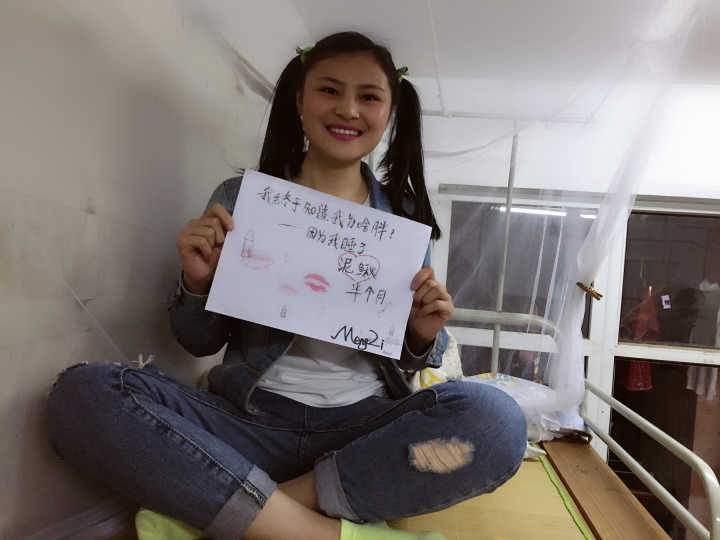 我终于知道我为啥胖?
——因为我睡了
泥鳅
半个月
MengZi